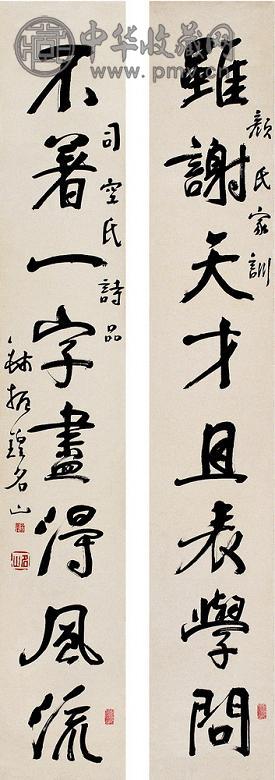 中华收藏网
www.pmw.cn
雖謝天才且表學問
顏氏家訓
不著一字盡得風流
司空氏詩品
錢振鍠名山
名山